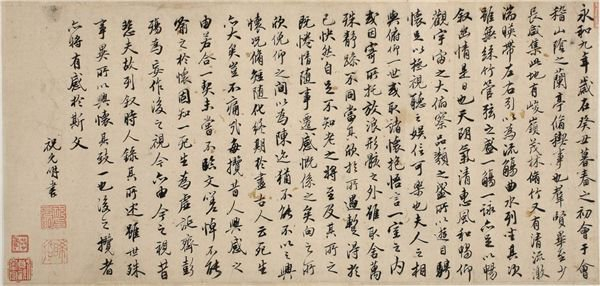 永和九年歲在癸丑暮春之初會于會
稽山陰之蘭亭脩禊事也羣賢畢至少
長咸集此地有峻嶺茂林脩竹又有清流激
湍映帶左右引以為流觴曲水列坐其次
雖無絲竹管弦之盛一觴一詠亦足以暢
叙幽情是日也天朗氣清惠風和暢仰
觀宇宙之大俯察品類之盛所以遊目騁
懷足以極視聽之娛信可樂也夫人之相
與俯仰一世或取諸懷抱悟言一室之內
或因寄所托放浪形骸之外雖取舍萬
殊靜躁不同當其欣於所遇暫得於
己快然自足不知老之將至及其所之
既惓情隨事遷感慨係之矣向之所
欣俛仰之間以為陳迹猶不能不以之興
懷況脩短隨化終期於盡古人云死生
亦大矣豈不痛哉每攬昔人興感之
由若合一契未嘗不臨文嗟悼不能
喻之於懷固知一死生為虛誕齊彭
殤為妄作後之視今亦由今之視昔
悲夫故列叙時人錄其所述雖世殊
事異所以興懷其致一也後之攬者
亦將有感於斯文
祝允明書